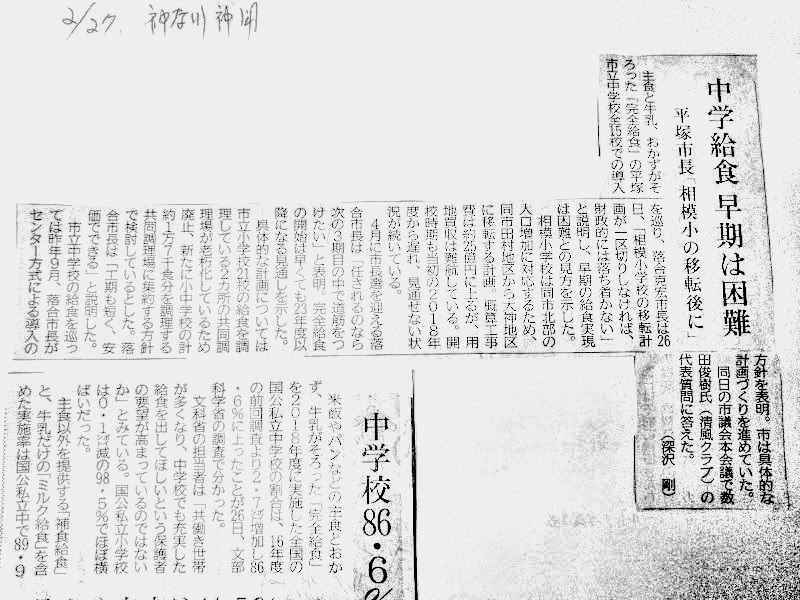 2/27. 神奈川新聞
中学給食 早期は困難
平塚市長「相模小の移転後に」
主食と牛乳、おかずがそ
ろった「完全給食」の平塚
市立中学校全15校での導入
を巡り、落合克宏市長は26
日、「相模小学校の移転計
画が一区切りしなければ、
財政的には落ち着かない」
と説明し、早期の給食実現
は困難との見方を示した。
相模小学校は同市北部の
人口増加に対応するため、
同市田村地区から大神地区
に移転する計画。概算工事
費は約25億円に上るが、用
地買収は難航している。開
校時期も当初の2018年
度から遅れ、見通せない状
況が続いている。
4月に市長選を迎える落
合市長は「任されるのなら
次の3期目の中で道筋をつ
けたい」と表明。完全給食
の開始は早くても23年度以
降になる見通しを示した。
具体的な計画については
市立小学校21校の給食を調
理している2カ所の共同調
理場が老朽化しているため
廃止、新たに小中学校の計
約1万7千食分を調理する
共同調理場に集約する方針
で検討しているとした。落
合市長は「工期も短く、安
価でできる」と説明した。
市立中学校の給食を巡っ
ては昨年9月、落合市長が
センター方式による導入の
方針を表明。市は具体的な
計画づくりを進めていた。
同日の市議会本会議で数
田俊樹氏（清風クラブ）の
代表質問に答えた。
（深沢 剛）
中学校86・6%
米飯やパンなどの主食とおか
ず、牛乳がそろった「完全給食」
を2018年度に実施した全国の
国公私立中学校の割合は、16年度
の前回調査より2・7㌽増加し86
・6%に上ったことが26日、文部
科学省の調査で分かった。
文科省の担当者は「共働き世帯
が多くなり、中学校でも充実した
給食を出してほしいという保護者
の要望が高まっているのではない
か」とみている。国公私立小学校
は0・1㌽減の98・5%でほぼ横
ばいだった。
主食以外を提供する「補食給食」
と、牛乳だけの「ミルク給食」を含
めた実施率は国公私立中で89・9